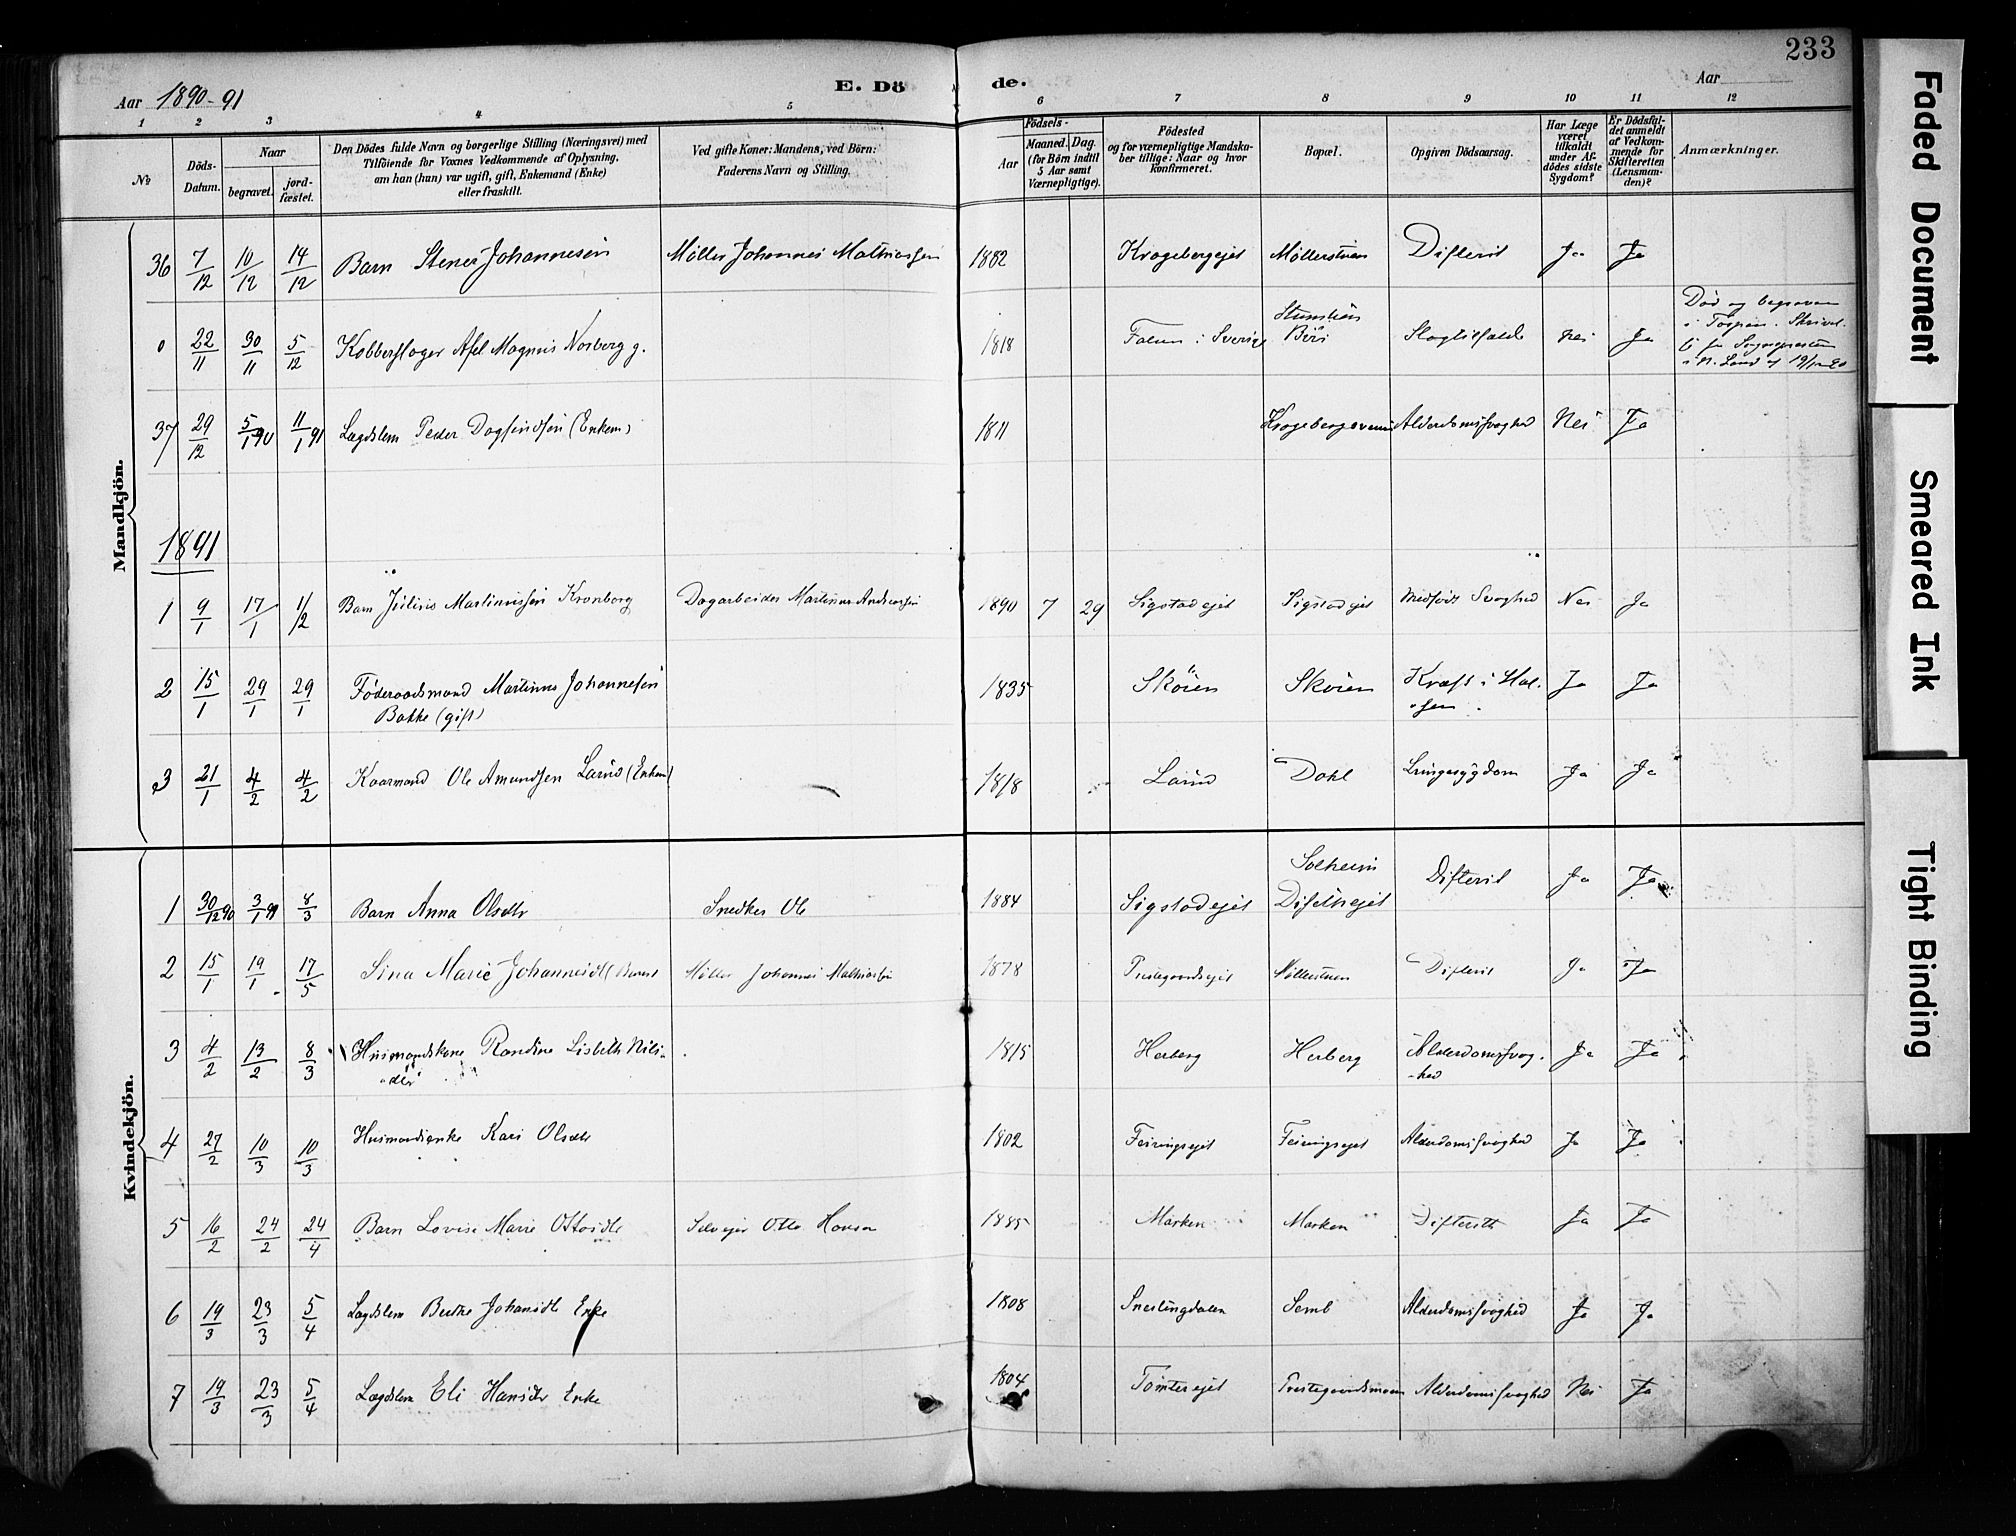 233
Aar 1890-91
E. Dö de.
Aar
1 2 3 4 5 6 7 8 9 10 11 12
No
Döds-Datum.
Naar
begravet.
jord-fæstet.
Den Dödes fulde Navn og borgerlige Stilling (Næringsvei) med
Tilföiende for Voxnes Vedkommende af Oplysning,
om han (hun) var ugift, gift, Enkemand (Enke)
eller fraskilt.
Ved gifte Koner: Mandens, ved Börn:
Faderens Navn og Stilling.
Födsels-
Aar
Maaned. Dag.
(for Börn indtil
5 Aar samt
Værnepligtige).
Födested
og for værnepligtige Mandska-
ber tillige: Naar og hvor
konfirmeret.
Bopæl.
Opgiven Dödsaarsag.
Har Læge
været
tilkaldt
under Af-
dödes sidste
Sygdom?
Er Dödsfal-
det anmeldt
af Vedkom-
mende for
Skifteretten
(Lensman-
den)?
Anmærkninger.
Mandkjön.
36 7/12 10/12 14/12 Barn Stener Johannesen Møller Johannes Mathiassen 1882 Kragebergejet Møllerstuen Difterit Ja Ja
0 22/11 30/11 5/12 Kobberslager Axel Magnus Norberg g. 1818 Falun i Sverige Slagtilfælde Nei Ja
Død og begraven
37 29/12 5/1 90 11/1 91 Lægdslem Peder Dagfindsen (Enkem) 1811 Alderdomssvaghed Nei Ja
1891
1 9/1 17/1 1/2 Barn Julius Martinussen Kronborg Dagarbeider Martinus Andreassen 1890 7 29 Sigstadejet Sigstadejet Medfødt Svaghed Nei Ja
2 15/1 29/1 29/1 Føderaadsmand Martinus Johannesen
Bakke (gift) 1835 Skøien Skøien Kræft i Hal-
sen Ja Ja
3 21/1 4/2 4/2 Kaarmand Ole Amundsen Laind (Enkem) 1818 Laind Dahl Lungesygdom Ja Ja
Kvindekjön.
1 30/12 90 3/1 91 8/3 Barn Anna Olsdtr Snedker Ole 1884 Sigstadejet Solheim
Difterit Ja Ja
2 15/1 19/1 17/5 Sina Marie Johannesdtr (Barn) Møller Johannes Mathiassen 1878 Prestegaardsejet Møllerstuen Difterit Ja Ja
3 4/2 13/2 8/3 Husmandskone Randine Lisbeth Nils-
dtr 1815 Herberg Herberg Alderdomssvag-
hed Ja Ja
4 27/2 10/3 10/3 Husmandsenke Kari Olsdtr 1802 Feiringsejet Feiringsejet Alderdomssvaghed Ja Ja
5 16/2 24/2 24/4 Barn Lovise Marie Ottosdtr Selvejer Otto Hansen 1885 Marken Marken Difterith Ja Ja
6 19/3 23/3 5/4 Lægdslem Berthe Johansdtr Enke 1808 Snertingdalen Semb Alderdomssvaghed Ja Ja
7 19/3 23/3 5/4 Lægdslem Eli Hansdtr Enke 1804 Tomterejet Prestegaardsmoen Alderdomssvaghed Nei Ja
Faded Document
Smeared Ink
Tight Binding